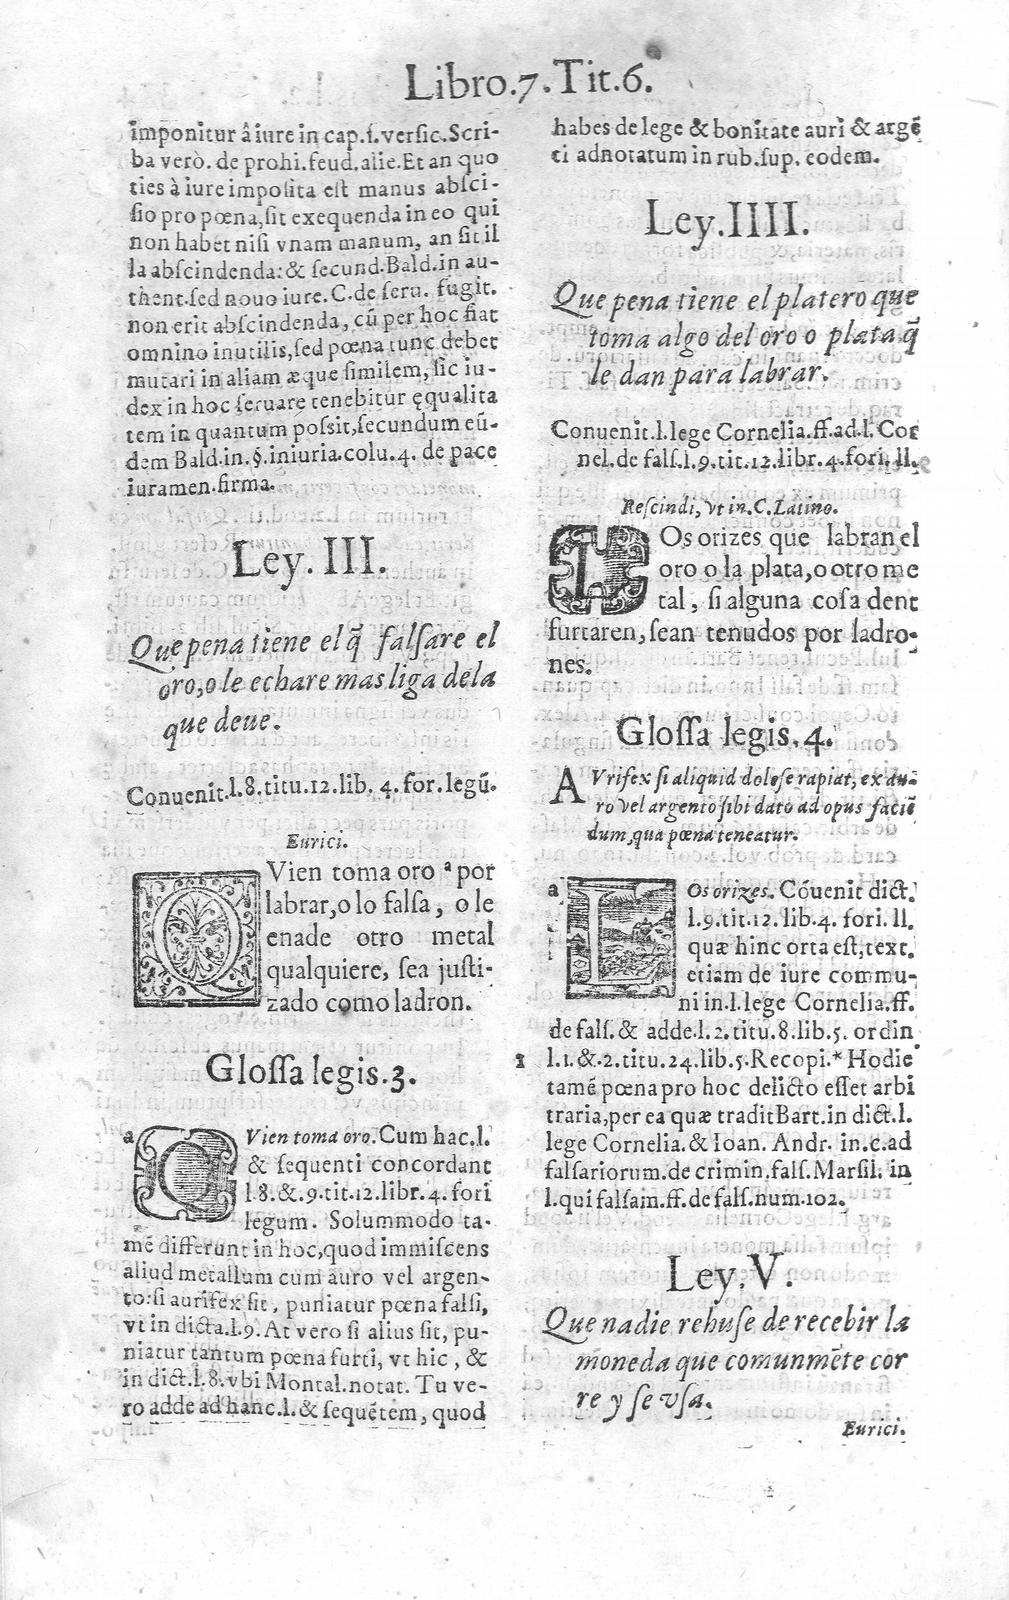 Libro.7.Tit.6.
imponitur â iure in cap.1.versic.Scri-
ba verò. de prohi.feud.alie.Et an quo
ties à iure imposita est manus absci-
sio pro pœna, sit exequenda in eo qui
non habet nisi vnam manum, an sit il
la abscindenda: & secund.Bald.in au-
thent.sed nouo iure. C.de seru. fugit.
non erit abscindenda, cū per hoc fiat
omnino inutilis, sed pœna tunc debet
mutari in aliam æque similem, sic iu-
dex in hoc seruare tenebitur ęqualita
tem in quantum possit, secundum eū-
dem Bald.in.§.iniuria.colu.4. de pace
iuramen.firma.
Ley. III.
Que pena tiene el q̄ falsare el
oro, o le echare mas liga dela
que deue.
Conuenit.l.8.titu.12.lib. 4. for.legū.
Eurici.
QVien toma oro ª por
labrar, o lo falsa, o le
enade otro metal
qualquiere, sea justi-
zado como ladron.
Glossa legis.3.
a QVien toma oro. Cum hac.l.
& sequenti concordant
l.8.&.9.tit.12.libr.4.fori
legum. Solummodo ta-
mē differunt in hoc, quod immiscens
aliud metallum cum auro vel argen-
to: si aurifex sit, puniatur pœna falsi,
vt in dicta.l.9. At vero si alius sit, pu-
niatur tantum pœna furti, vt hic, &
in dict.l.8.vbi Montal.notat. Tu ve-
ro adde ad hanc.l. & sequētem, quod
habes de lege & bonitate auri & argē
ti adnotatum in rub.sup. eodem.
Ley.IIII.
Que pena tiene el platero que
toma algo del oro o plata q̄
le dan para labrar.
Conuenit.l.lege Cornelia.ff.ad.l.Cor
nel.de fals.l.9.tit.12.libr.4.fori.ll.
Rescindi, vt in.C.Latino.
LOs orizes que labran el
oro o la plata, o otro me
tal, si alguna cosa dent
furtaren, sean tenudos por ladro-
nes.
Glossa legis.4.
AVrifex si aliquid dolose rapiat, ex au-
ro vel argento sibi dato ad opus faciē
dum, qua pœna teneatur.
a LOs orizes. Cōuenit dict.
l.9.tit.12.lib.4. fori.ll.
quæ hinc orta est, text.
etiam de iure commu-
ni in.l.lege Cornelia.ff.
de fals. & adde.l.2.titu.8.lib.5. ordin
1 l.1.&.2.titu.24.lib.5.Recopi.* Hodie
tamē pœna pro hoc delicto esset arbi
traria, per ea quæ tradit Bart.in dict.l.
lege Cornelia.& Ioan. Andr. in.c.ad
falsariorum.de crimin.fals.Marsil. in
l.qui falsam.ff.de fals.num.102.
Ley.V.
Que nadie rehuse de recebir la
moneda que comunmēte cor
re y se vsa.
Eurici.